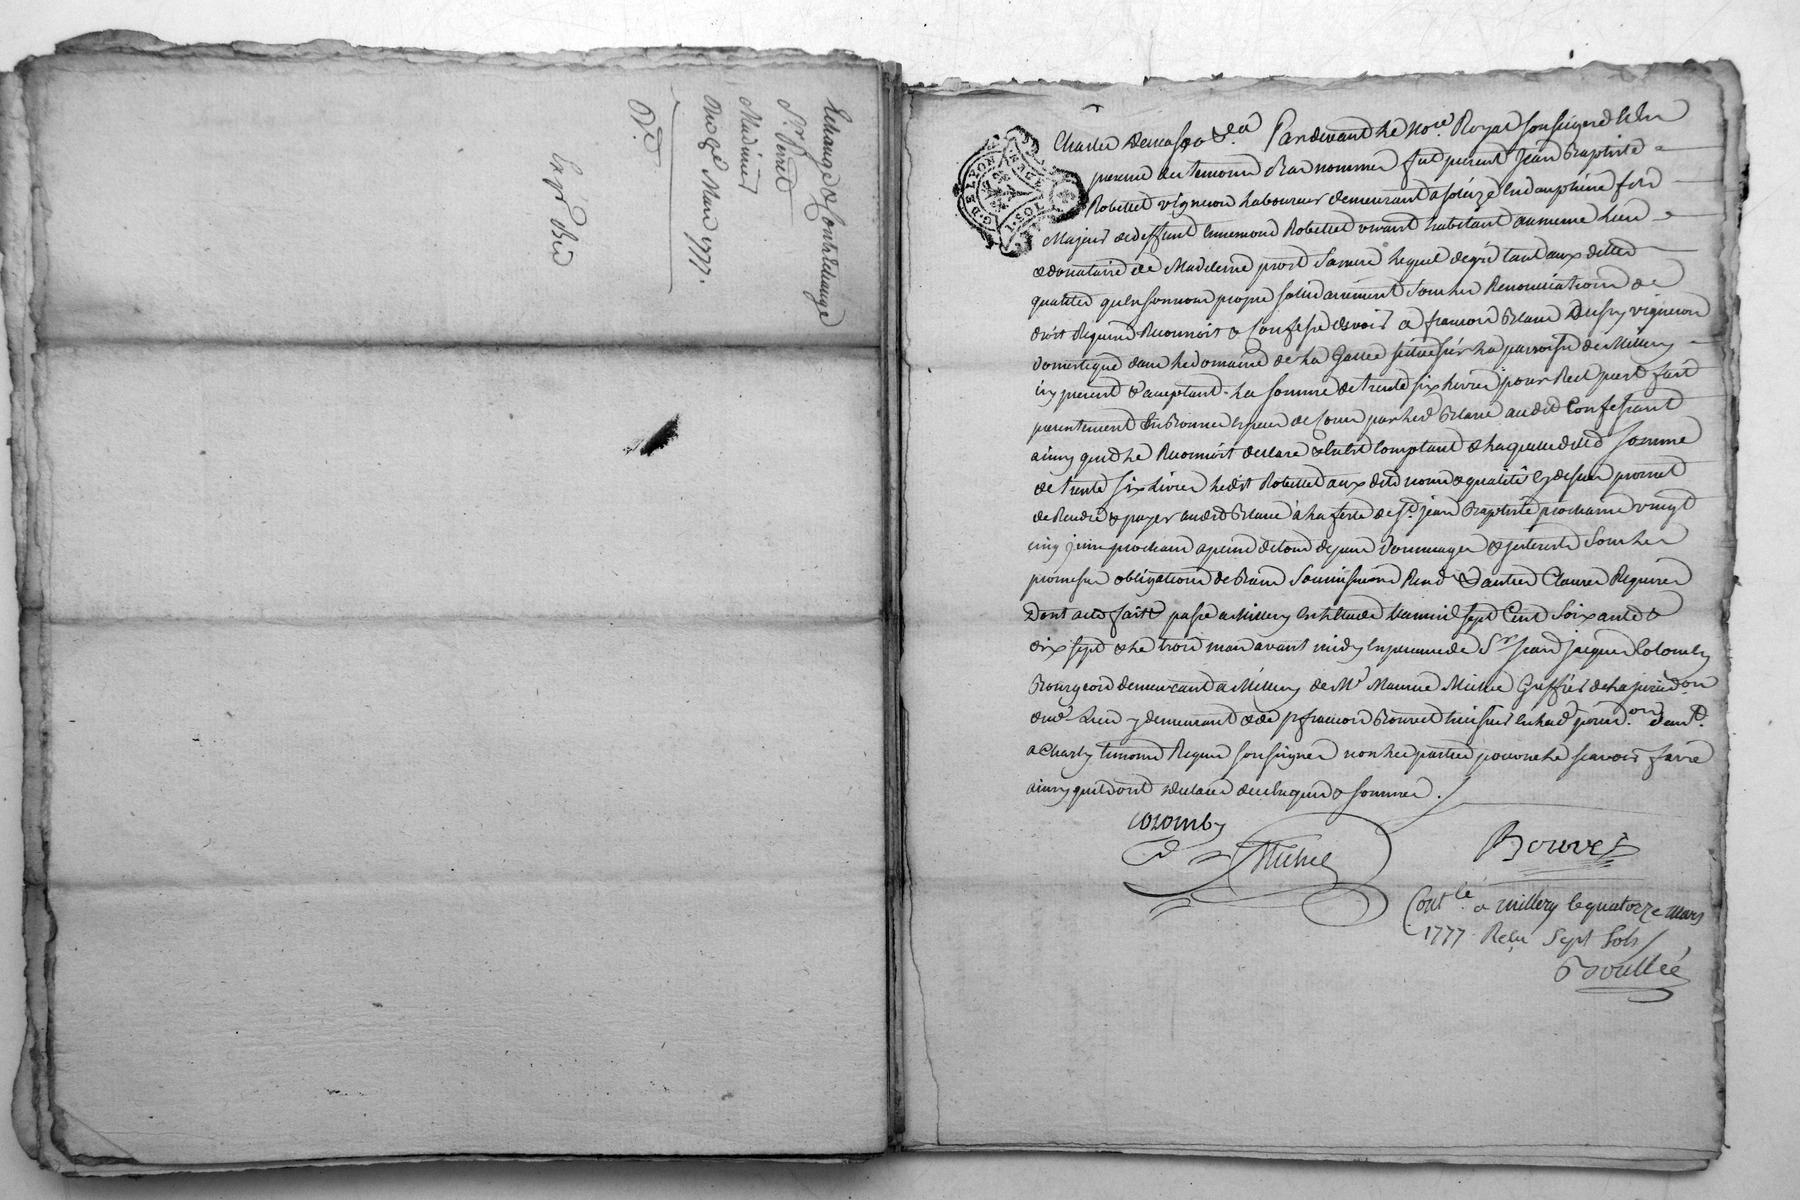 Echange & Contréchange
Sr. Perret
Madinier
Du 9e Mars 1777.
Charles Demasso &a. Pardevant le Nore. Royal soussigné & En
presence des temoins Bas nommes fut present Jean Baptiste
Robellet vigneron laboureur demeurant a solèze en dauphine fils
Majeur de deffunt Ennemond Robellet vivant habitant au meme lieu
& donataire de Madeleine prost sa mere lequel de gré tant aux dittes
qualites qu'en son nom propre solidairement sous les Renonciations de
droit Requises Reconnoit & Confesse devoir a francois Blanc vigneron
domestique dans le domaine de la Gallée situé sur la paroisse de Millery
icy present & acceptant la somme de trente six livres pour Pret fait
presentement En Bonnes Especes de Cours par led Blanc audit Confessant
ainsy quil le Reconnoit declare & Comptant & laquelle ditte somme
de trente six livres ledit Robellet aux dits noms & qualités cy dessus promet
de Rendre & payer audit Blanc à la feste de St. jean Baptiste prochaine vingt
cinq juin prochain a peine de tous depens dommages & interests sous les
promesses obligations de Biens soumissions Renons & autres Clauses Requises
Dont acte fait & passé a Millery En Etude L'an mil sept Cent soixante &
dix sept & le trois mars avant midy En presence de Sr. Jean Jacques Colomby
Bourgeois demeurant a Millery de Mr. Maurice Michel Greffier de la jurisdon
dud. Lieu y demeurant & de Sr francois Bouvet huissier En lad jurison. demt.
a Charly temoins Requis soussignes non les parties pour ne le scavoir faire
ainsy quils ont declaré de ce Enquis & sommes.
Colomby
Michel
Bouvet
Contle. a millery le quatorze mars
1777 Reçu Sept Sols
Boullée
G. DE LYON